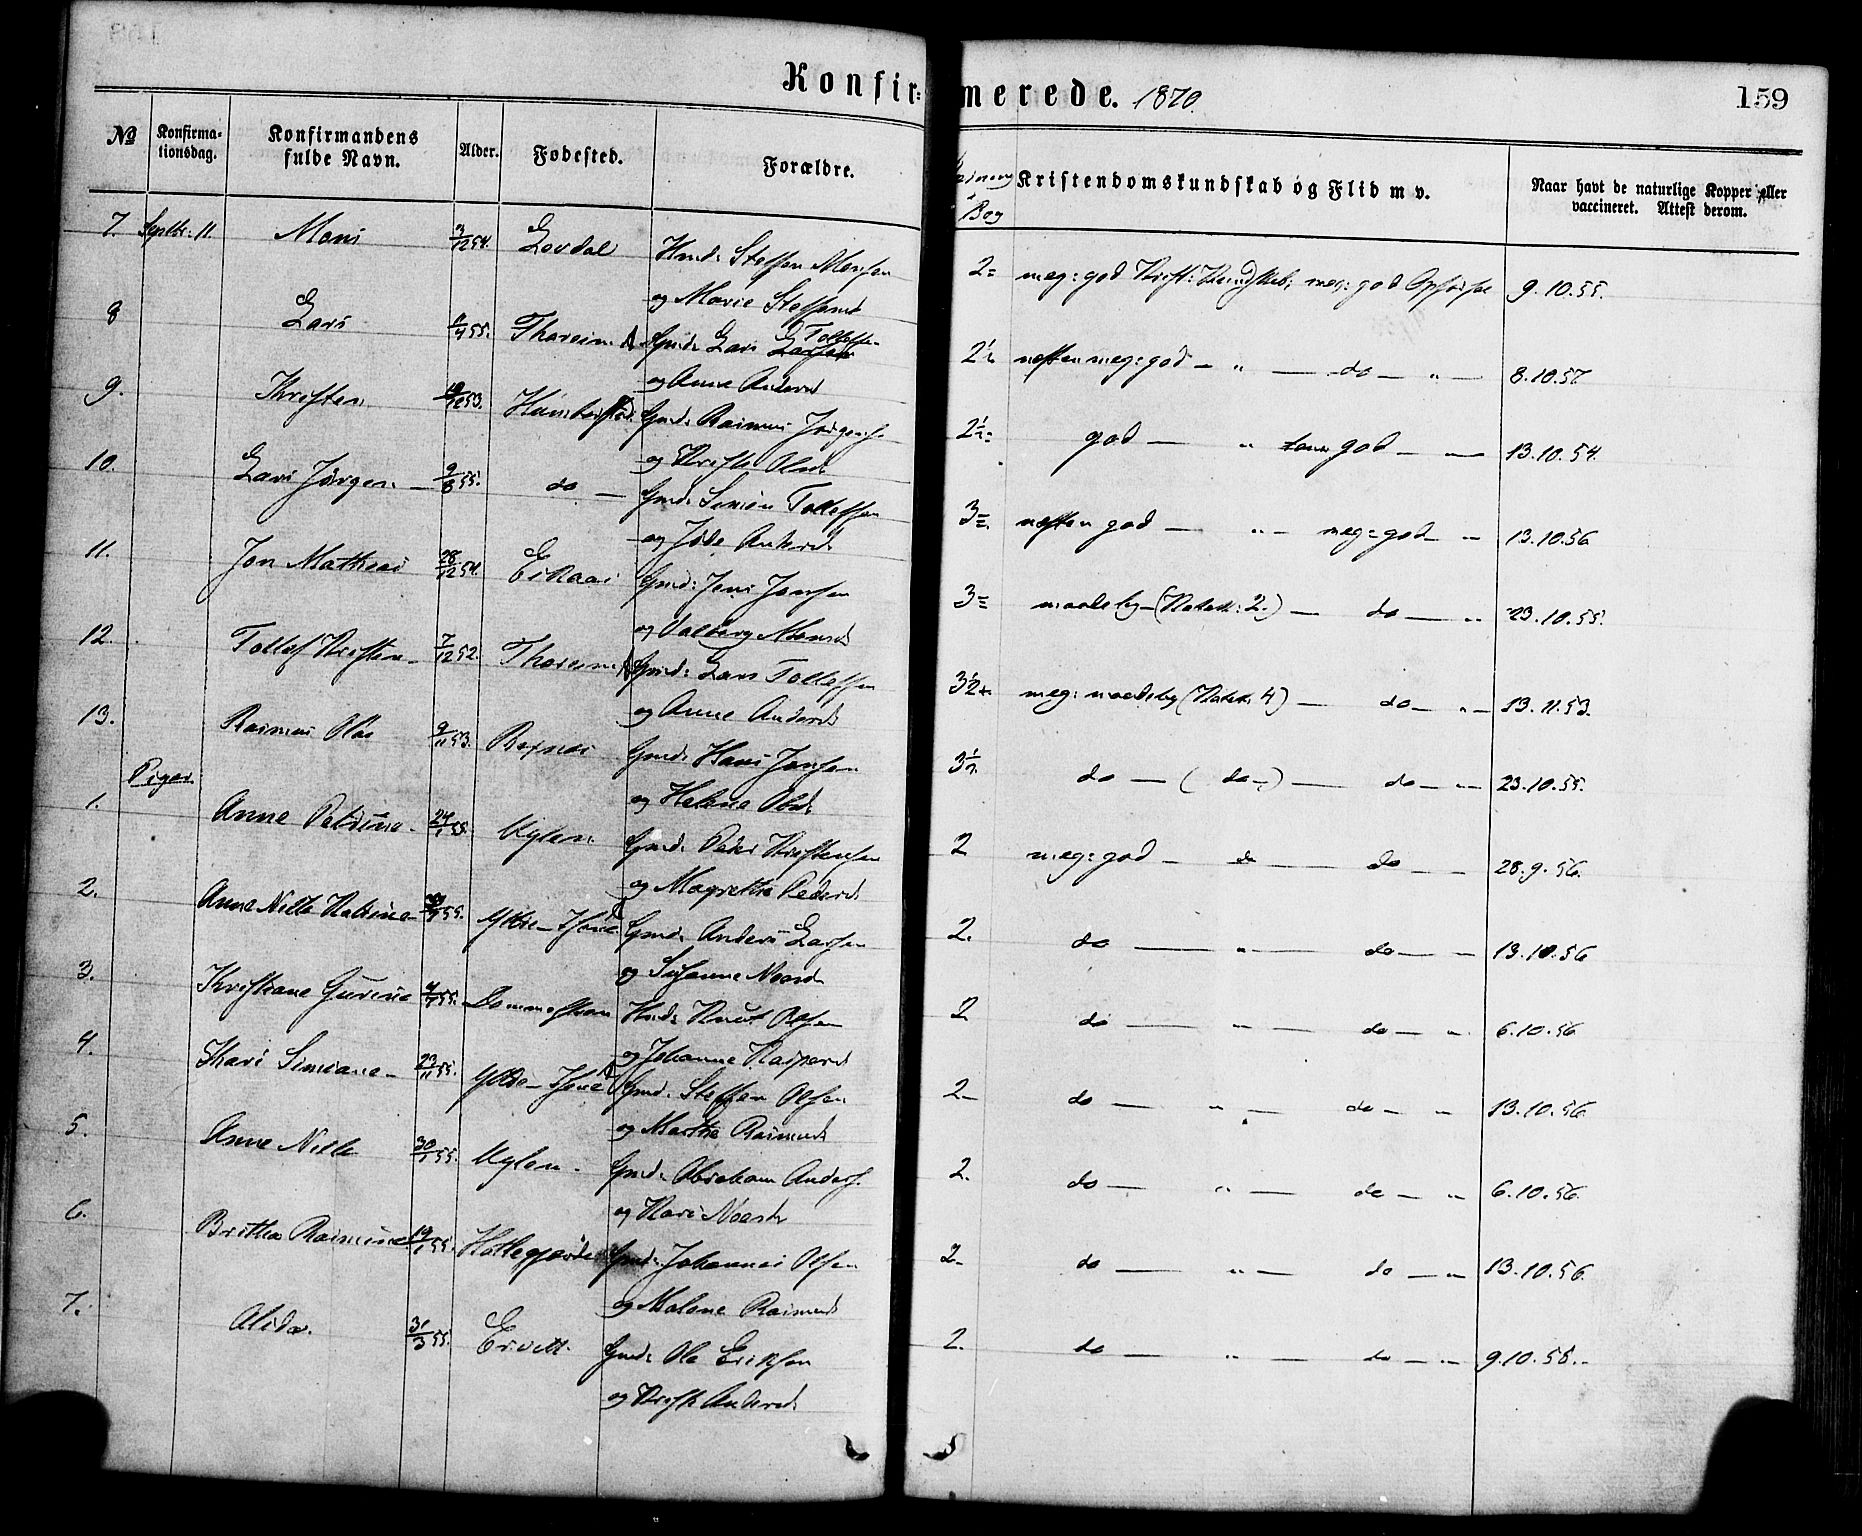 Konfirmerede. 1870. 159
№ Konfirmationsdag. Konfirmandens fulde Navn. Alder. Fødested. Forældre. Bog Kristendomskundskab og Flid m v. Naar havt de naturlige Kopper eller vaccineret. Attest derom.
7. Septbr. 11. Mons 3/12 54. Løvdal Hmd: Steffen Monsen 2= meg: god Krist: Kundskab; meg: god Opførsel 9.10.55.
og Marie Steffensd
8 Lars 55. Thoreim Gmd: Lars Tollefsen 2½ næsten meg: god — „ — do — „ — 8.10.57
og Anne Andersd
9. Kristen 53. Gmd: Rasmus Jørgens. 2½= god — „ god — — 13.10.54.
og Kristi Olsd
10. Lars Jørgen — 9/8 55. do — Gmd: Simon Tollefsen 3= næsten god — „ — meg: god — „ 13.10.56
og Andersd
11. Jon Mathias 28/12 54. Eikaas Gmd: Jens Jonsen 3= maadelig — (Katek: 2.) — do — „ 23.10.55.
og Valborg Monsd
12. Tollef Kristen — 7/12 52. Thoreim Gmd: Lars Tollefsen 3½ meg: maadelig (Katek: 4) — do — „ — 13.11.53.
og Anne Andersd
13. Rasmus Olai 9/11 53. Gmd: Hans Jonsen 3½ do — ( do — ) — do — „ — 23.10.55.
og Helene Olsd
Piger.
1. Anne Petrine — 24/1 55. Myklen. Gmd: Peder Kristensen 2 meg: god — do — do — — 28.9.56.
og Magrethe Pedersd
2. Anne Nille Katrine — 55. Gmd: Anders Larsen 2. do — „ — do — — 13.10.56
og Susanne Noasd
3. Kristiane Gurine 55. Hmd: Knut Olsen 2. do — „ — do — „ 6.10.56
og Johanne Kaspersd
4. Kari Simiane — 23/11 55. Gmd: Steffen Olsen 2 — do — „ — do — „ 13.10.56
og Marthe Rasmusd
5. Anne Nille 30/1 55. Myklen. Gmd: Abraham Anders. 2. do — „ — do — „ 6.10.56.
og Kari Noasd
6. Brithe Rasmine 19/1 55. Hatlegjerde Gmd: Johannes Olsen 2. do — „ — do — „ 13.10.56.
og Malene Rasmusd
7. Alida. 31/3 55. Ervik. Gmd: Ole Eriksen 2. do — „ — do — „ — 9.10.55.
og Kristi Andersd